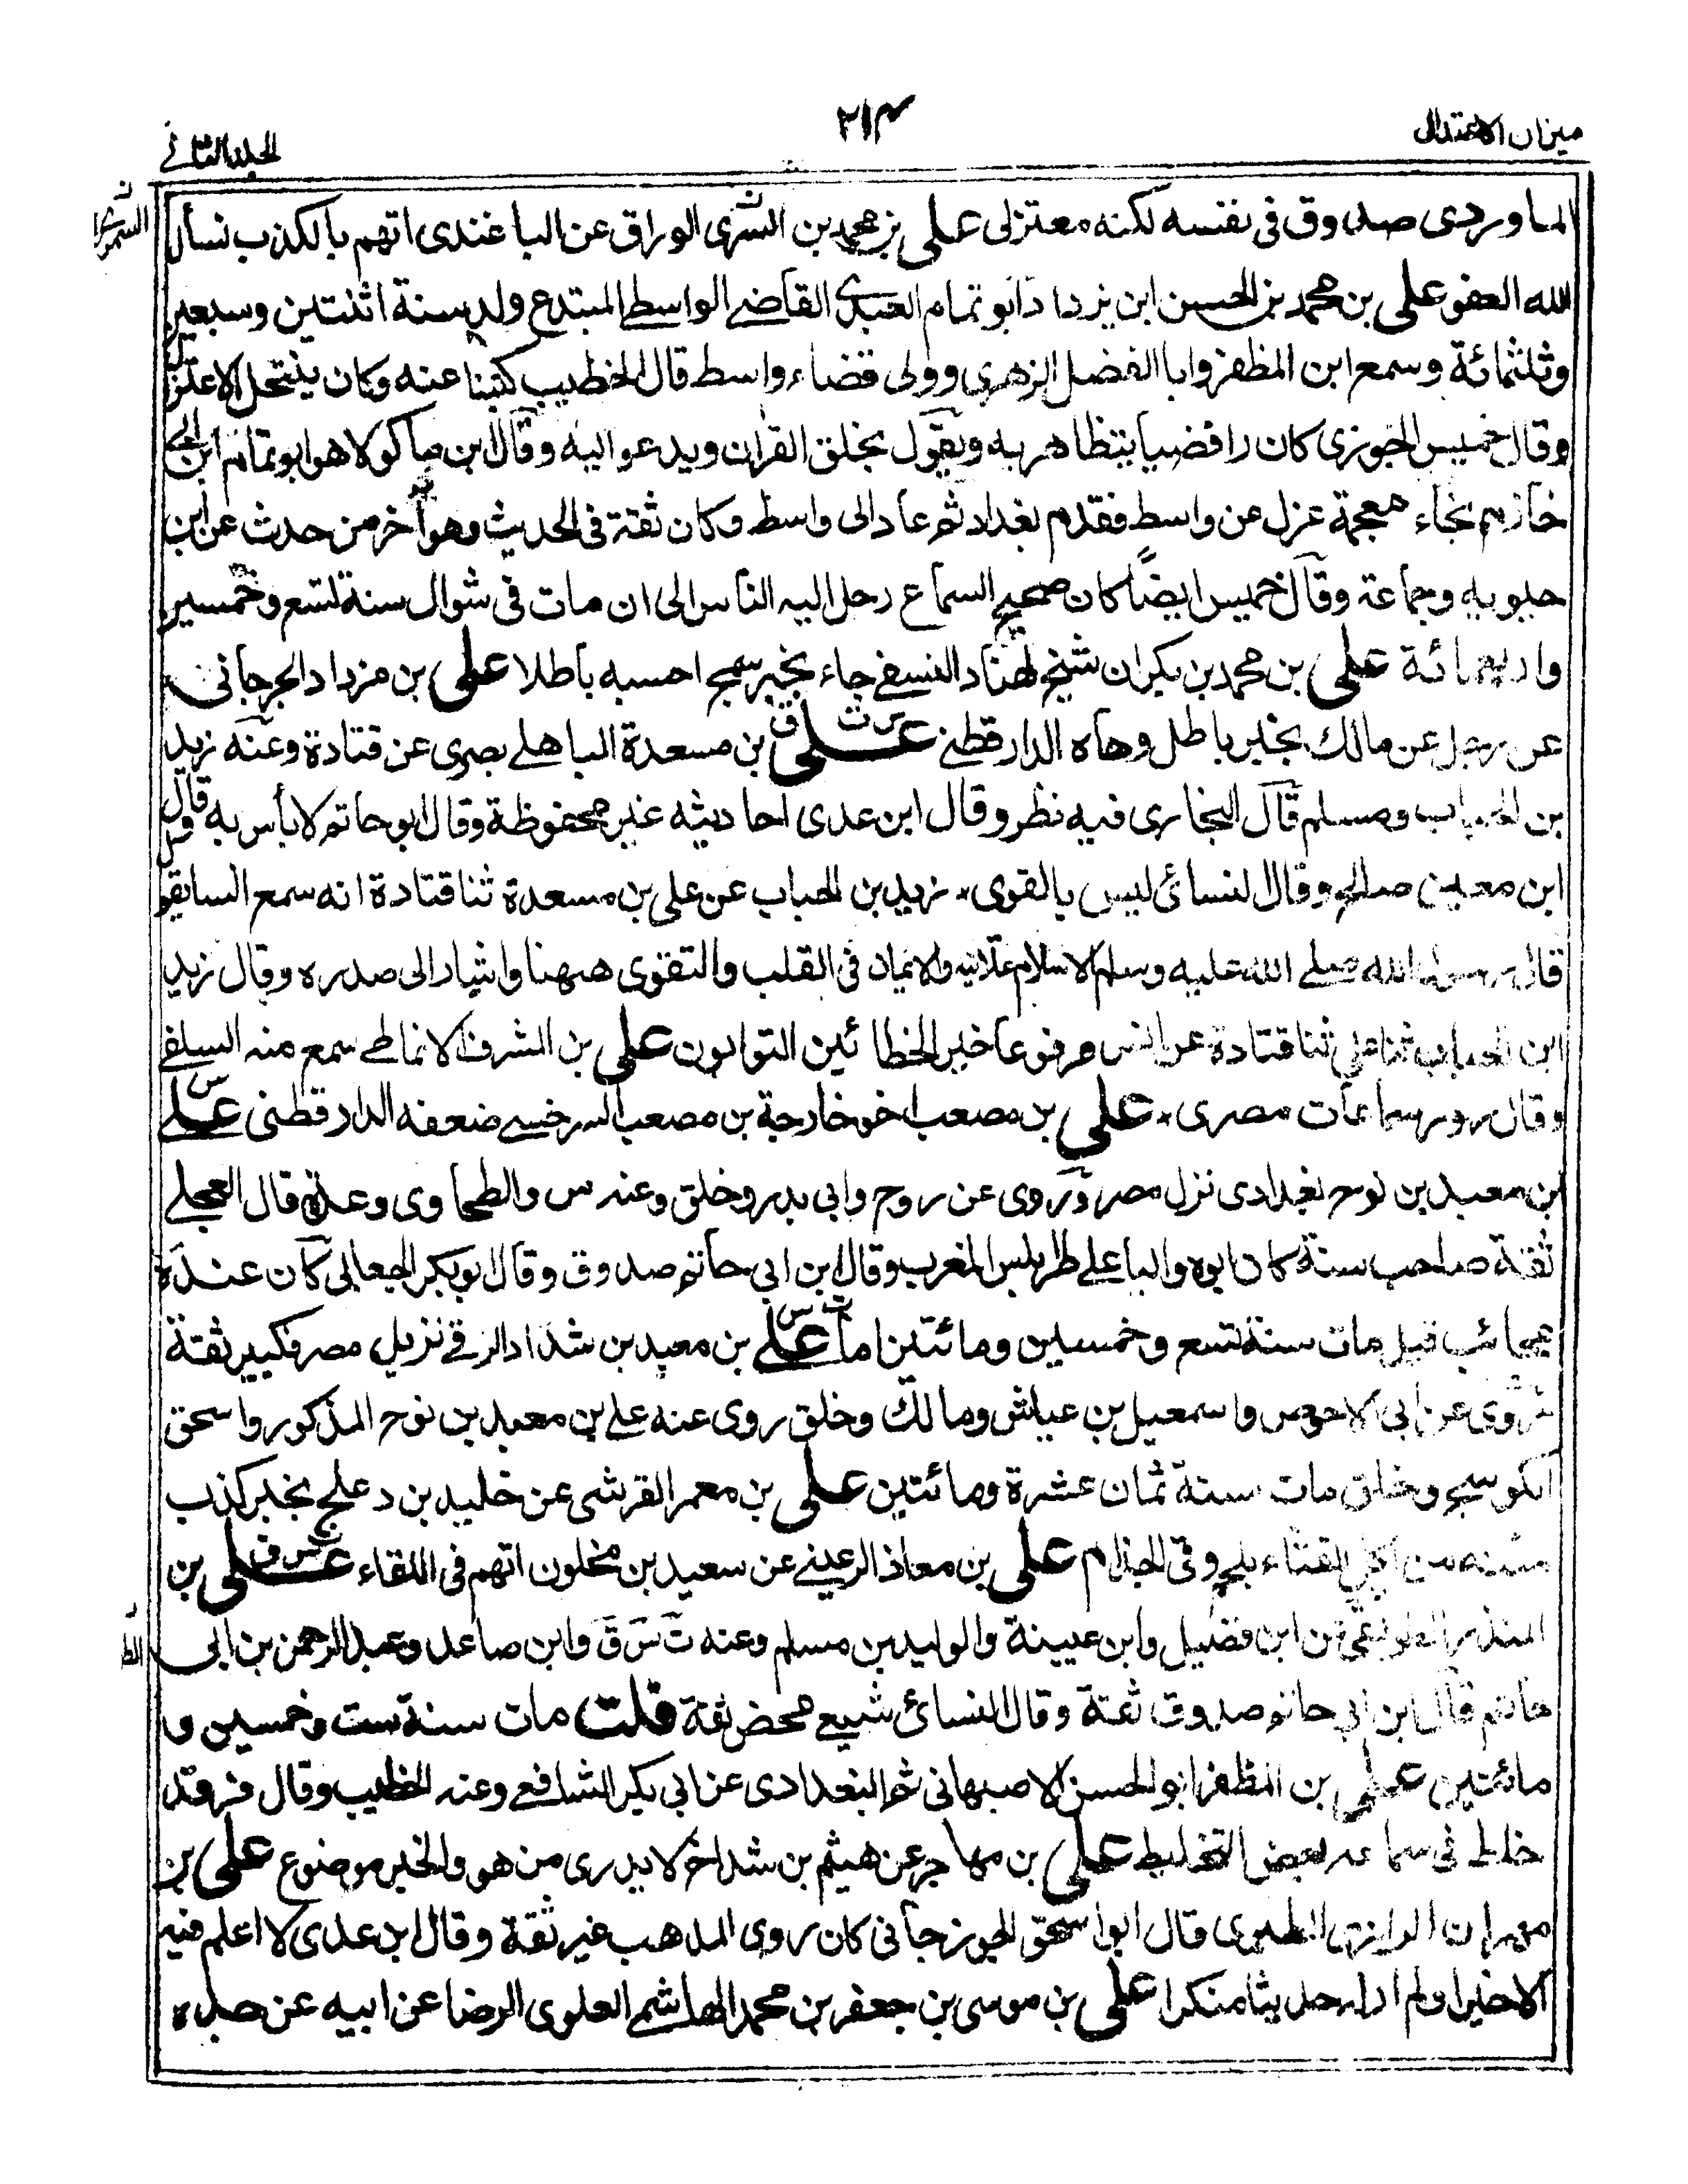 ميزان الاعتدال
٢١٣
الجلد الثاني
الماوردى صدوق فى نفسه لكنه معتزلى على بن محمد بن السرى الوراق عن الباغندى اتهم بالكذب نسأل
الله العفو على بن محمد بن الحسن ابن يزداد ابو تمام العبدى القاضى الواسطى المبتدع ولد سنة اثنتين وسبعين
وثلثمائة وسمع ابن المظفر وابا الفضل الزهرى وولى قضاء واسط قال الخطيب كتبنا عنه وكان ينتحل الاعتزال
وقال خميس الحوزى كان رافضيا يتظاهر به ويقول بخلق القرآن ويدعو اليه وقال ابن ماكولا هو ابو تمام ابن ابى
خازم بخاء معجمة عزل عن واسط فقدم بغداد ثم عاد الى واسط وكان ثقة فى الحديث وهو آخر من حدث عن ابن
حيويه وجماعة وقال خميس ايضًا كان صحيح السماع رحل اليه الناس الى ان مات فى شوال سنة تسع وخمسين
واربعمائة على بن محمد بن بكران شيخ لهناد النسفى جاء بخبر سمج احسبه باطلا على بن مزداد الجرجانى
عن رجل عن مالك بخبر باطل وهاه الدارقطنى س ت ق على بن مسعدة الباهلى بصرى عن قتادة وعنه زيد
بن الحباب ومسلم قال البخارى فيه نظر وقال ابن عدى احاديثه غير محفوظة وقال ابو حاتم لا بأس به وقال
ابن معين صالح وقال النسائى ليس بالقوى زيد بن الحباب عن على بن مسعدة ثنا قتادة انه سمع
قال رسول الله صلى الله عليه وسلم الاسلام علانيه والايمان فى القلب والتقوى ههنا واشار الى صدره وقال زيد
ابن الحباب ثنا على ثنا قتادة عن انس مرفوعا خير الخطائين التوابون على بن المشرف الانماطى سمع منه السلفى
وقال زور سماعات مصرى على بن مصعب اخو خارجة بن مصعب السرخسى ضعفه الدارقطنى س على
بن معبد بن نوح بغدادى نزل مصر وروى عن روح وابى بدر وخلق وعنه س والطحاوى وعدة قال العجلى
ثقة صاحب سنة كان ابوه واليا على طرابلس المغرب وقال ابن ابى حاتم صدوق وقال ابو بكر الجعابى كان عنده
عجائب قيل مات سنة تسع وخمسين ومائتين اما ت س على بن معبد بن شداد الرقى نزيل مصر فكبير ثقة
روى عن ابى الاحوص واسمعيل بن عياش ومالك وخلق روى عنه على بن معبد بن نوح المذكور واسحق
الكوسج وخلق مات سنة ثمان عشرة ومائتين على بن معمر القرشى عن خليد بن دعلج بخبر كذب
متنه من اكل القثاء بلحم وقى الجذام على بن معاذ الرعينى عن سعيد بن مخلون اتهم فى اللقاء ت س ق على بن
المنذر الطريقى عن ابن فضيل وابن عيينة والوليد بن مسلم وعنه ت س ق وابن صاعد وعبد الرحمن بن ابى
حاتم قال ابن ابى حاتم صدوق ثقة وقال النسائى شيعى محض ثقة قلت مات سنة ست وخمسين و
مائتين على بن المظفر ابو الحسن الاصبهانى ثم البغدادى عن ابى بكر الشافعى وعنه الخطيب وقال
خلط فى سماعه بعض التخليط على بن مهاجر عن هيثم بن شداخ لا يدرى من هو والخبر موضوع على بن
مهران الرازى الطبرى قال ابو اسحق الجوزجانى كان روى المذهب غير ثقة وقال ابن عدى لا اعلم فيه
الا خيرا ولم ار له حديثا منكرا على بن موسى بن جعفر بن محمد الهاشمى العلوى الرضا عن ابيه عن جده